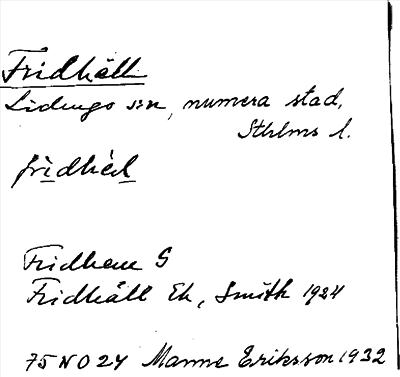 Fridhäll
Lidingö sn, numera stad,
Sthlms l.
frìdhèl
Fridhem G
Fridhäll Ek, Smith 1924
75 NO 24 Manne Eriksson 1932